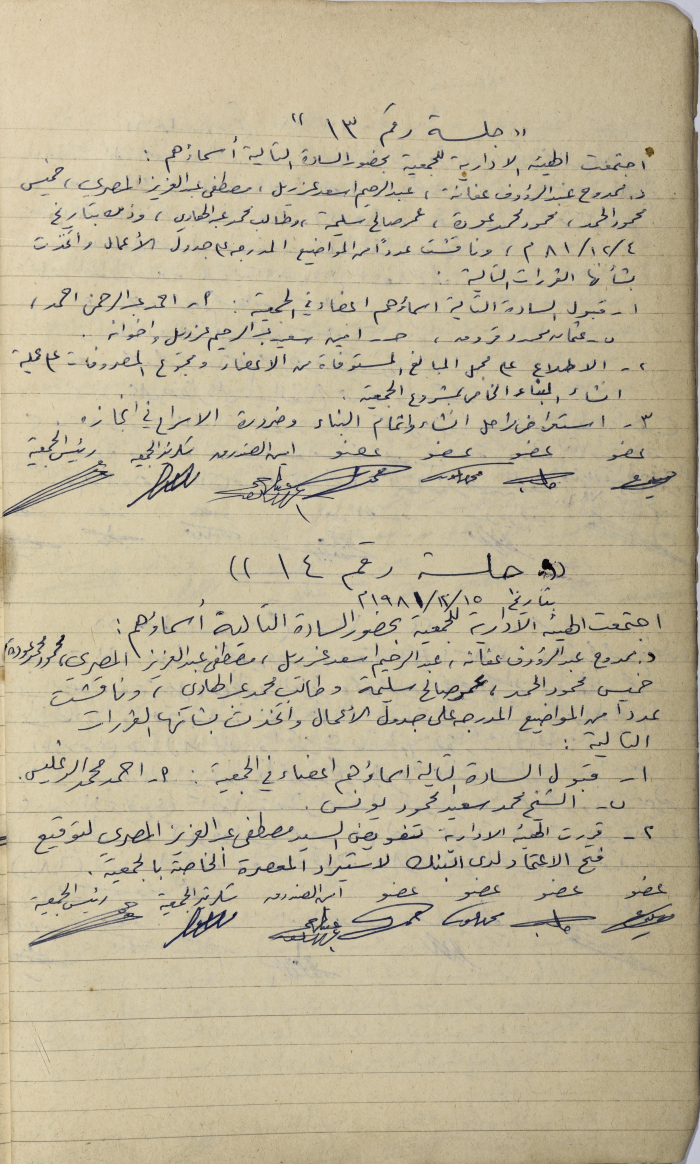 « جلسة رقم ١٣ »
اجتمعت الهيئة الادارية للجمعية بحضور السادة التالية أسماؤهم :
د. ممدوح عبد الرؤوف عنانة ، عبد الرحيم اسعد غزيل ، مصطفى عبد العزيز المصري ، خميس
محمود الحمد ، محمود محمد عودة ، عمر صالح سليمة ، وطالب محمد عبد الهادي ، وذلك بتاريخ
٨١/١٢/٤ م ، وناقشت عدداً من المواضيع المدرجة على جدول الأعمال واتخذت
بشأنها القرارات التالية :
١- قبول السادة التالية اسماؤهم اعضاء في الجمعية : أ- احمد عبد الرحمن احمد ،
ب- عثمان محمود ، حـ- امين سعيد عبد الرحيم غزيل واخوانه .
٢- الاطلاع على مجمل المبالغ المستوفاة من الأعضاء ومجموع المصروفات على عملية
انشاء البناء الخاص بمشروع الجمعية .
٣- استعراض مراحل انشاء واتمام البناء وضرورة الاسراع في انجازه
عضو عضو عضو عضو امين الصندوق سكرتير الجمعية رئيس الجمعية
« جلسة رقم ١٤ »
بتاريخ ١٩٨١/١٢/١٥ م
اجتمعت الهيئة الادارية للجمعية بحضور السادة التالية أسماؤهم :
د. ممدوح عبد الرؤوف عنانة ، عبد الرحيم اسعد غزيل ، مصطفى عبد العزيز المصري ، محمود محمد عودة ،
خميس محمود الحمد ، عمر صالح سليمة وطالب محمد عبد الهادي ، وناقشت
عدداً من المواضيع المدرجة على جدول الأعمال واتخذت بشأنها القرارات
التالية :
١- قبول السادة التالية اسماؤهم اعضاء في الجمعية : أ- احمد محمد
ب- الشيخ محمد سعيد محمود يونس .
٢- قررت الهيئة الادارية تفويض السيد مصطفى عبد العزيز المصري لتوقيع
فتح الاعتماد لدى البنك لاستيراد المعصرة الخاصة بالجمعية .
عضو عضو عضو عضو أمين الصندوق سكرتير الجمعية رئيس الجمعية